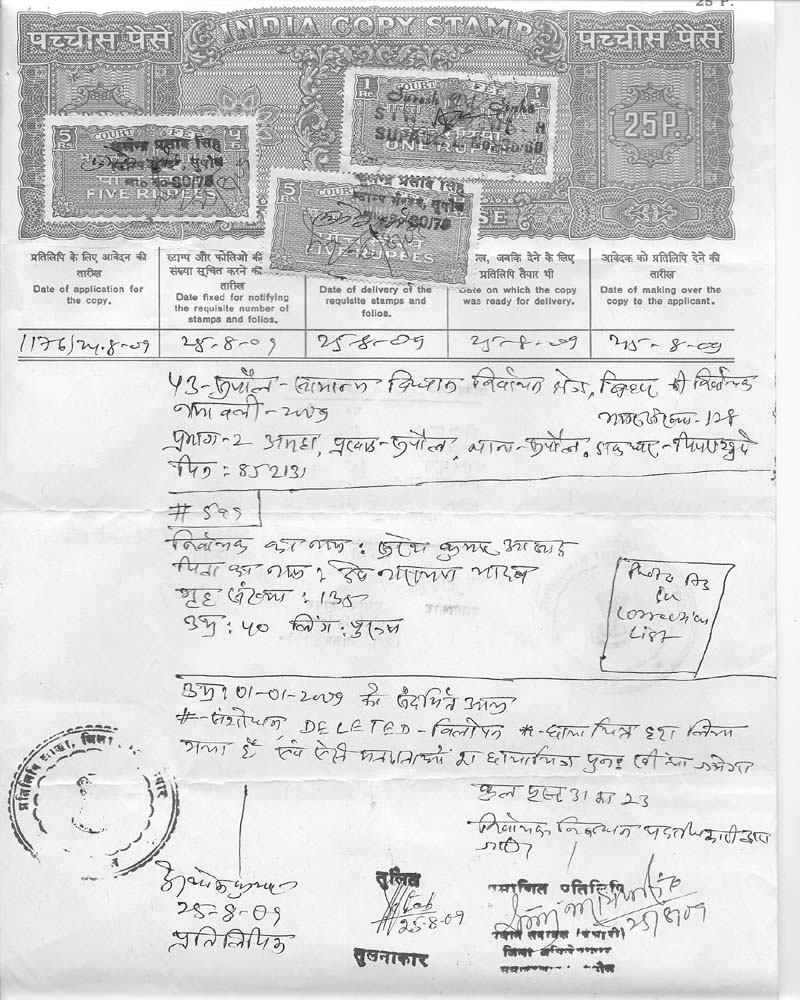 25 P.
INDIA COPY STAMP
पच्चीस पैसे
पच्चीस पैसे
25P.
1 Re. COURT FEE
Suresh Pd. Sinha
5 Rs. COURT FEE
कुलेन्द्र प्रसाद सिंह
FIVE RUPEES
5 Rs. COURT
कुलेन्द्र प्रसाद सिंह
RUPEES
प्रतिलिपि के लिए आवेदन की तारीख
Date of application for the copy.
स्टाम्प और फोलिओ की संख्या सूचित करने की तारीख
Date fixed for notifying the requisite number of stamps and folios.
Date of delivery of the requisite stamps and folios.
जबकि देने के लिए प्रतिलिपि तैयार थी
Date on which the copy was ready for delivery.
आवेदक को प्रतिलिपि देने की तारीख
Date of making over the copy to the applicant.
1176/24.8-09 25-8-09 25-8-09 25-8-09 25-8-09
43-सुपौल-सामान्य विधान निर्वाचन क्षेत्र, बिहार की निर्वाचक
नामावली-2009
भाग संख्या-128
प्रभाग-2 अमहा, प्रखण्ड-सुपौल, थाना-सुपौल, डाकघर-पिपरा खुर्द
पिन : 852131
# 599
निर्वाचक का नाम : कुमार आजाद
पिता का नाम : देव नारायण यादव
गृह संख्या : 135
उम्र : 40 लिंग : पुरुष
Photo As In Correction List
उम्र : 01-01-2009 को संदर्भित
#-संशोधन DELETED-विलोपन *-छाया चित्र हटा लिया
गया है एवं ऐसे मतदाताओं का छायाचित्र पुनः
कुल पृष्ठ 31 का 23
निर्वाचक निबंधन पदाधिकारी
प्रतिलिपि शाखा, जिला
25-8-09
प्रतिलिपिक
तुलित
25.8.09
तुलनाकार
प्रमाणित प्रतिलिपि
25/8/09